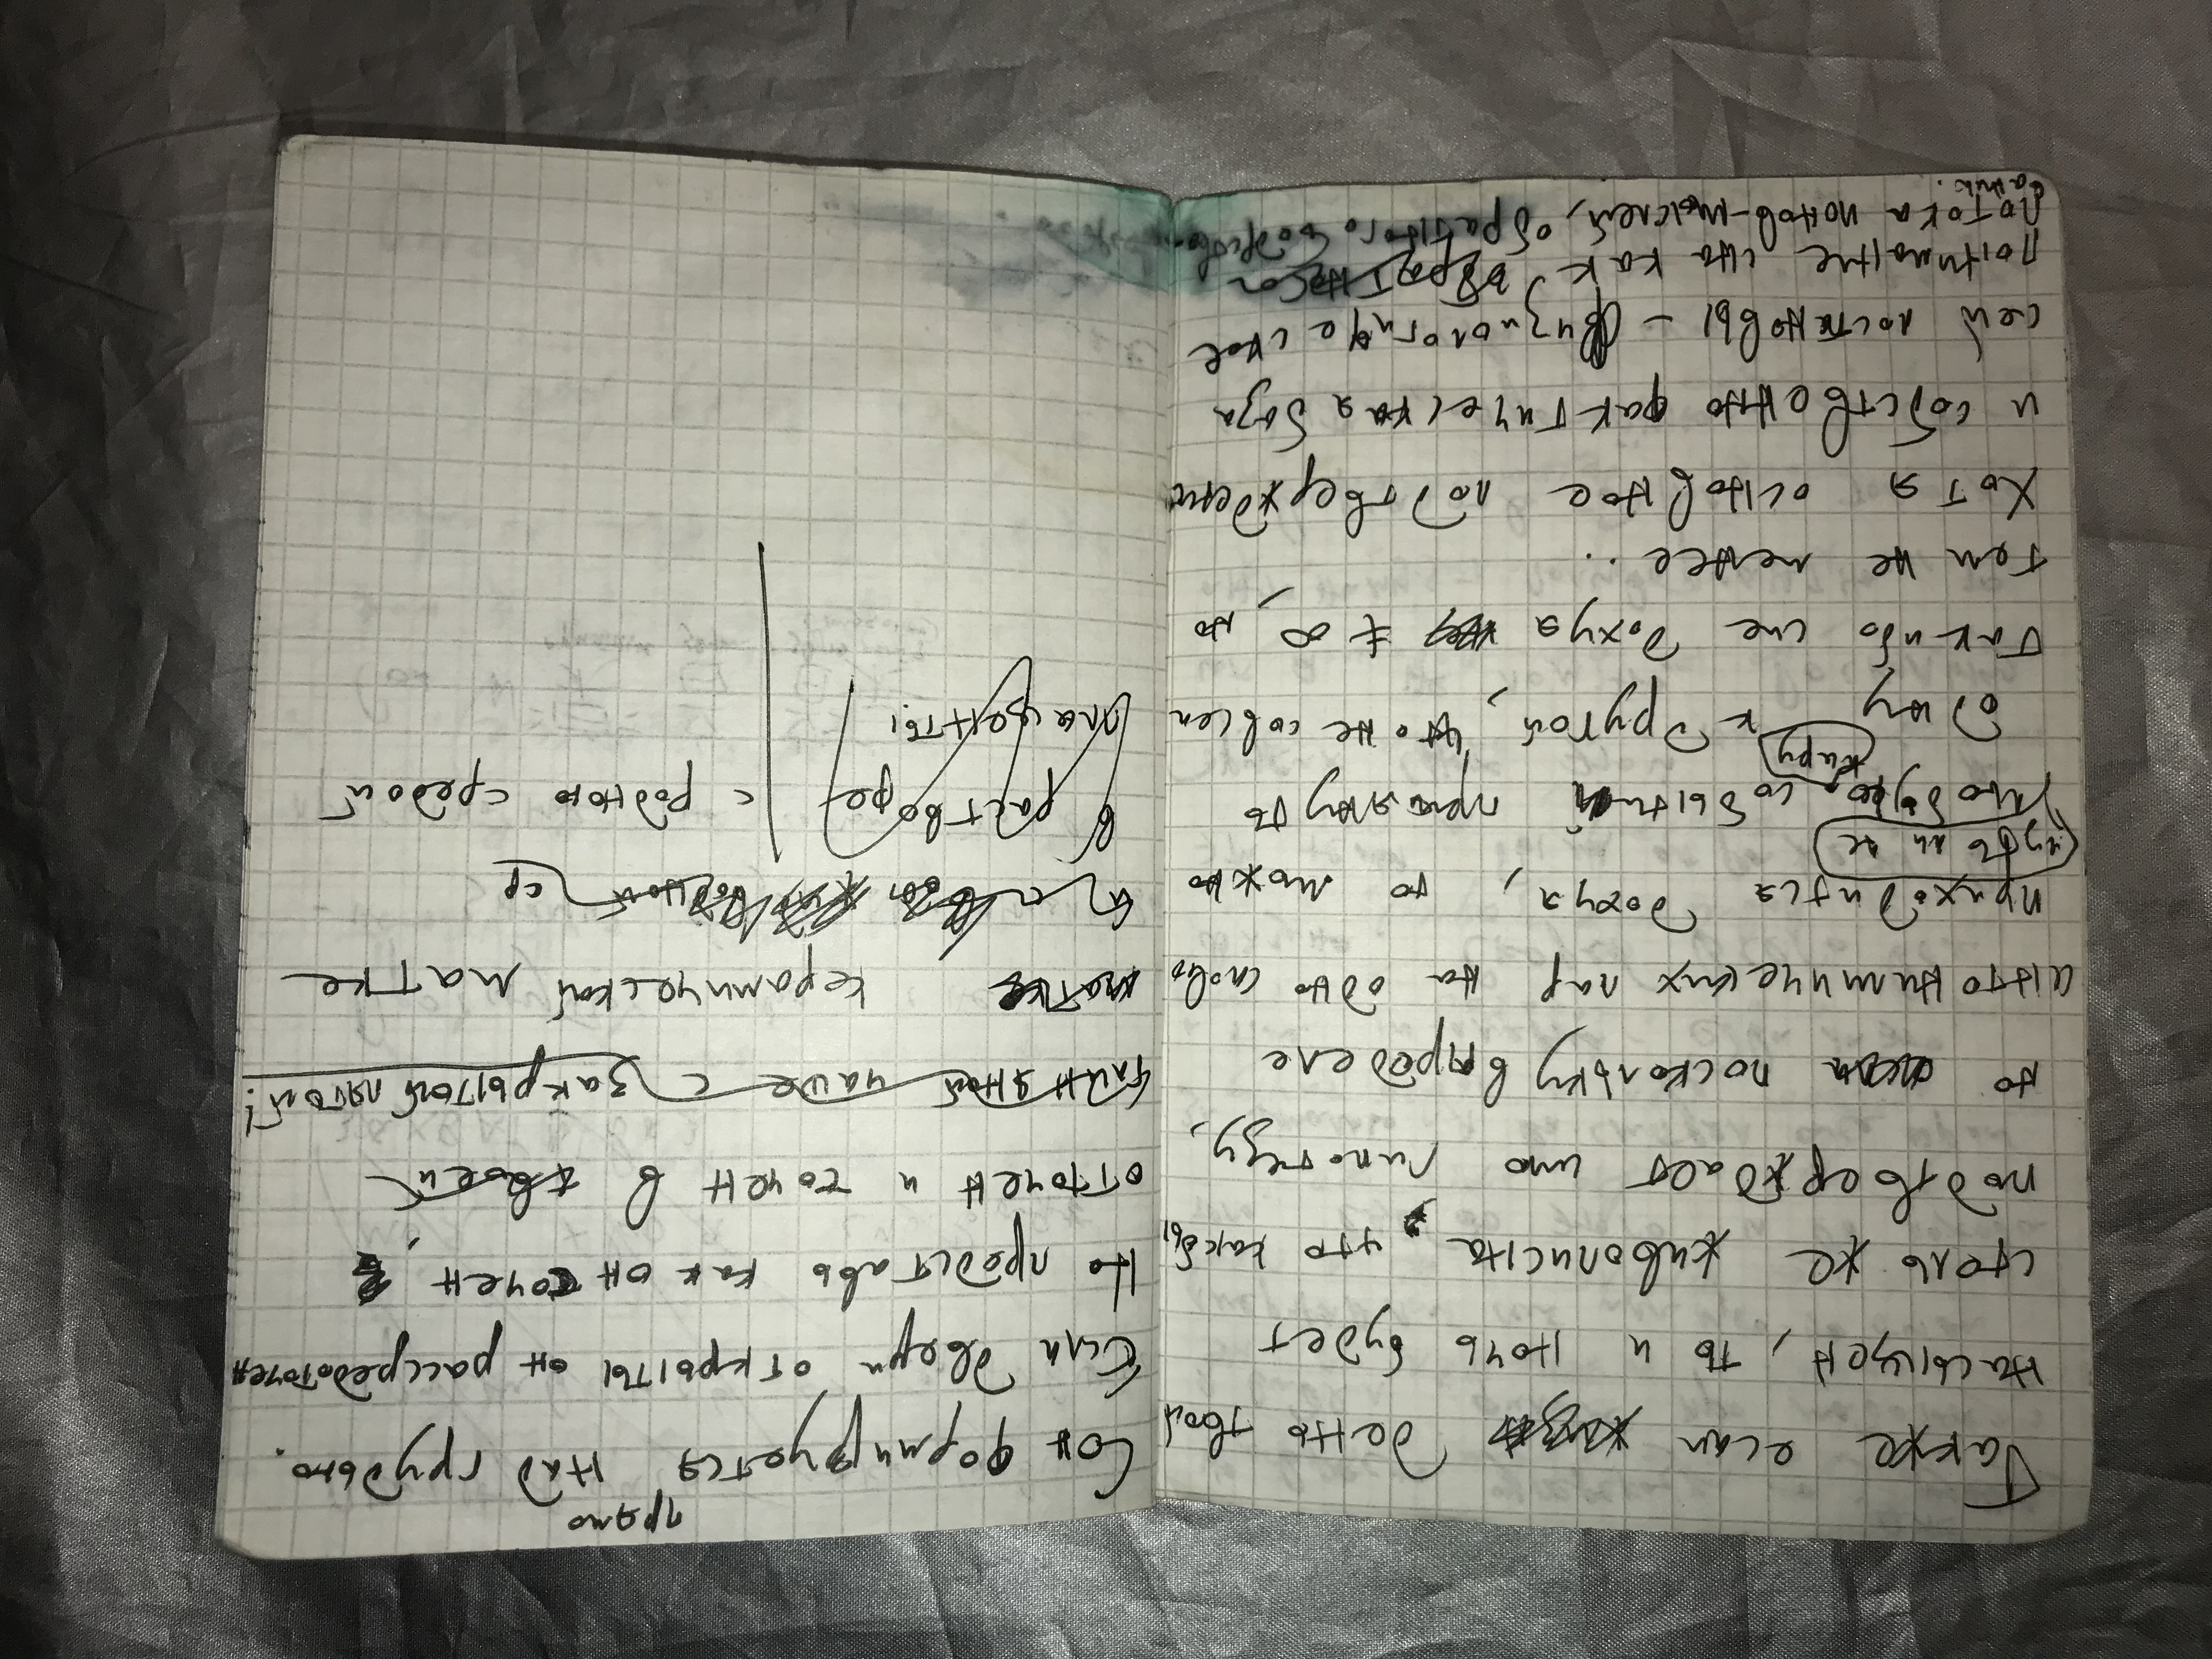 Также если день твой
насыщен, то и ночь будет
столь же живописна, что как бы
подтверждает мою гипотезу,
но поскольку в пределе
антонимических пар на одно слово
приходится дохуя, то можно
чуть ли не
любую событий притянуть
пару
одну к другой, что не совсем
так ибо сие дохуя ≠ ∞, но
тем не менее..
Хотя основное подтвержден
и собственно фактическая база
сей постановы – физиологическое
понимание сна как обратного
потока ионов-мыслей, обратного бодрство
ванию.
прямо
Сон формируется над грудью.
Если двери открыты он рассредоточен
Но представь как он точен,
отточен и точен в твоей
глиняной чаше с закрытой пятой!
матке керамической матке
ср
в растворе с родною средой
плаценты